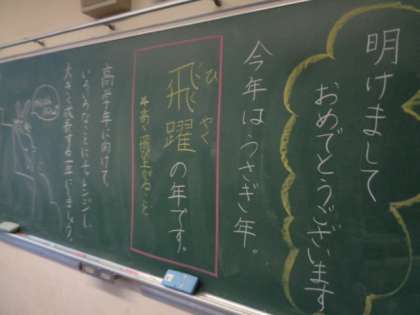 明けまして
おめでとうございます
今年はうさぎ年。
ひやく
飛躍の年です。
高学年に向けて、
いろいろなことにチャレンジし、
大きく成長する一年にしましょう。